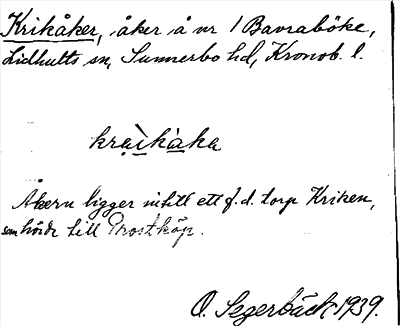 Krikåker, åker å nr 1 Bavraböke,
Lidhults sn, Sunnerbo hd, Kronob. l.
kraìkàka
Åkern ligger intill ett f.d. torp Kriken,
som hörde till Prostköp.
O. Segerbäck 1939.